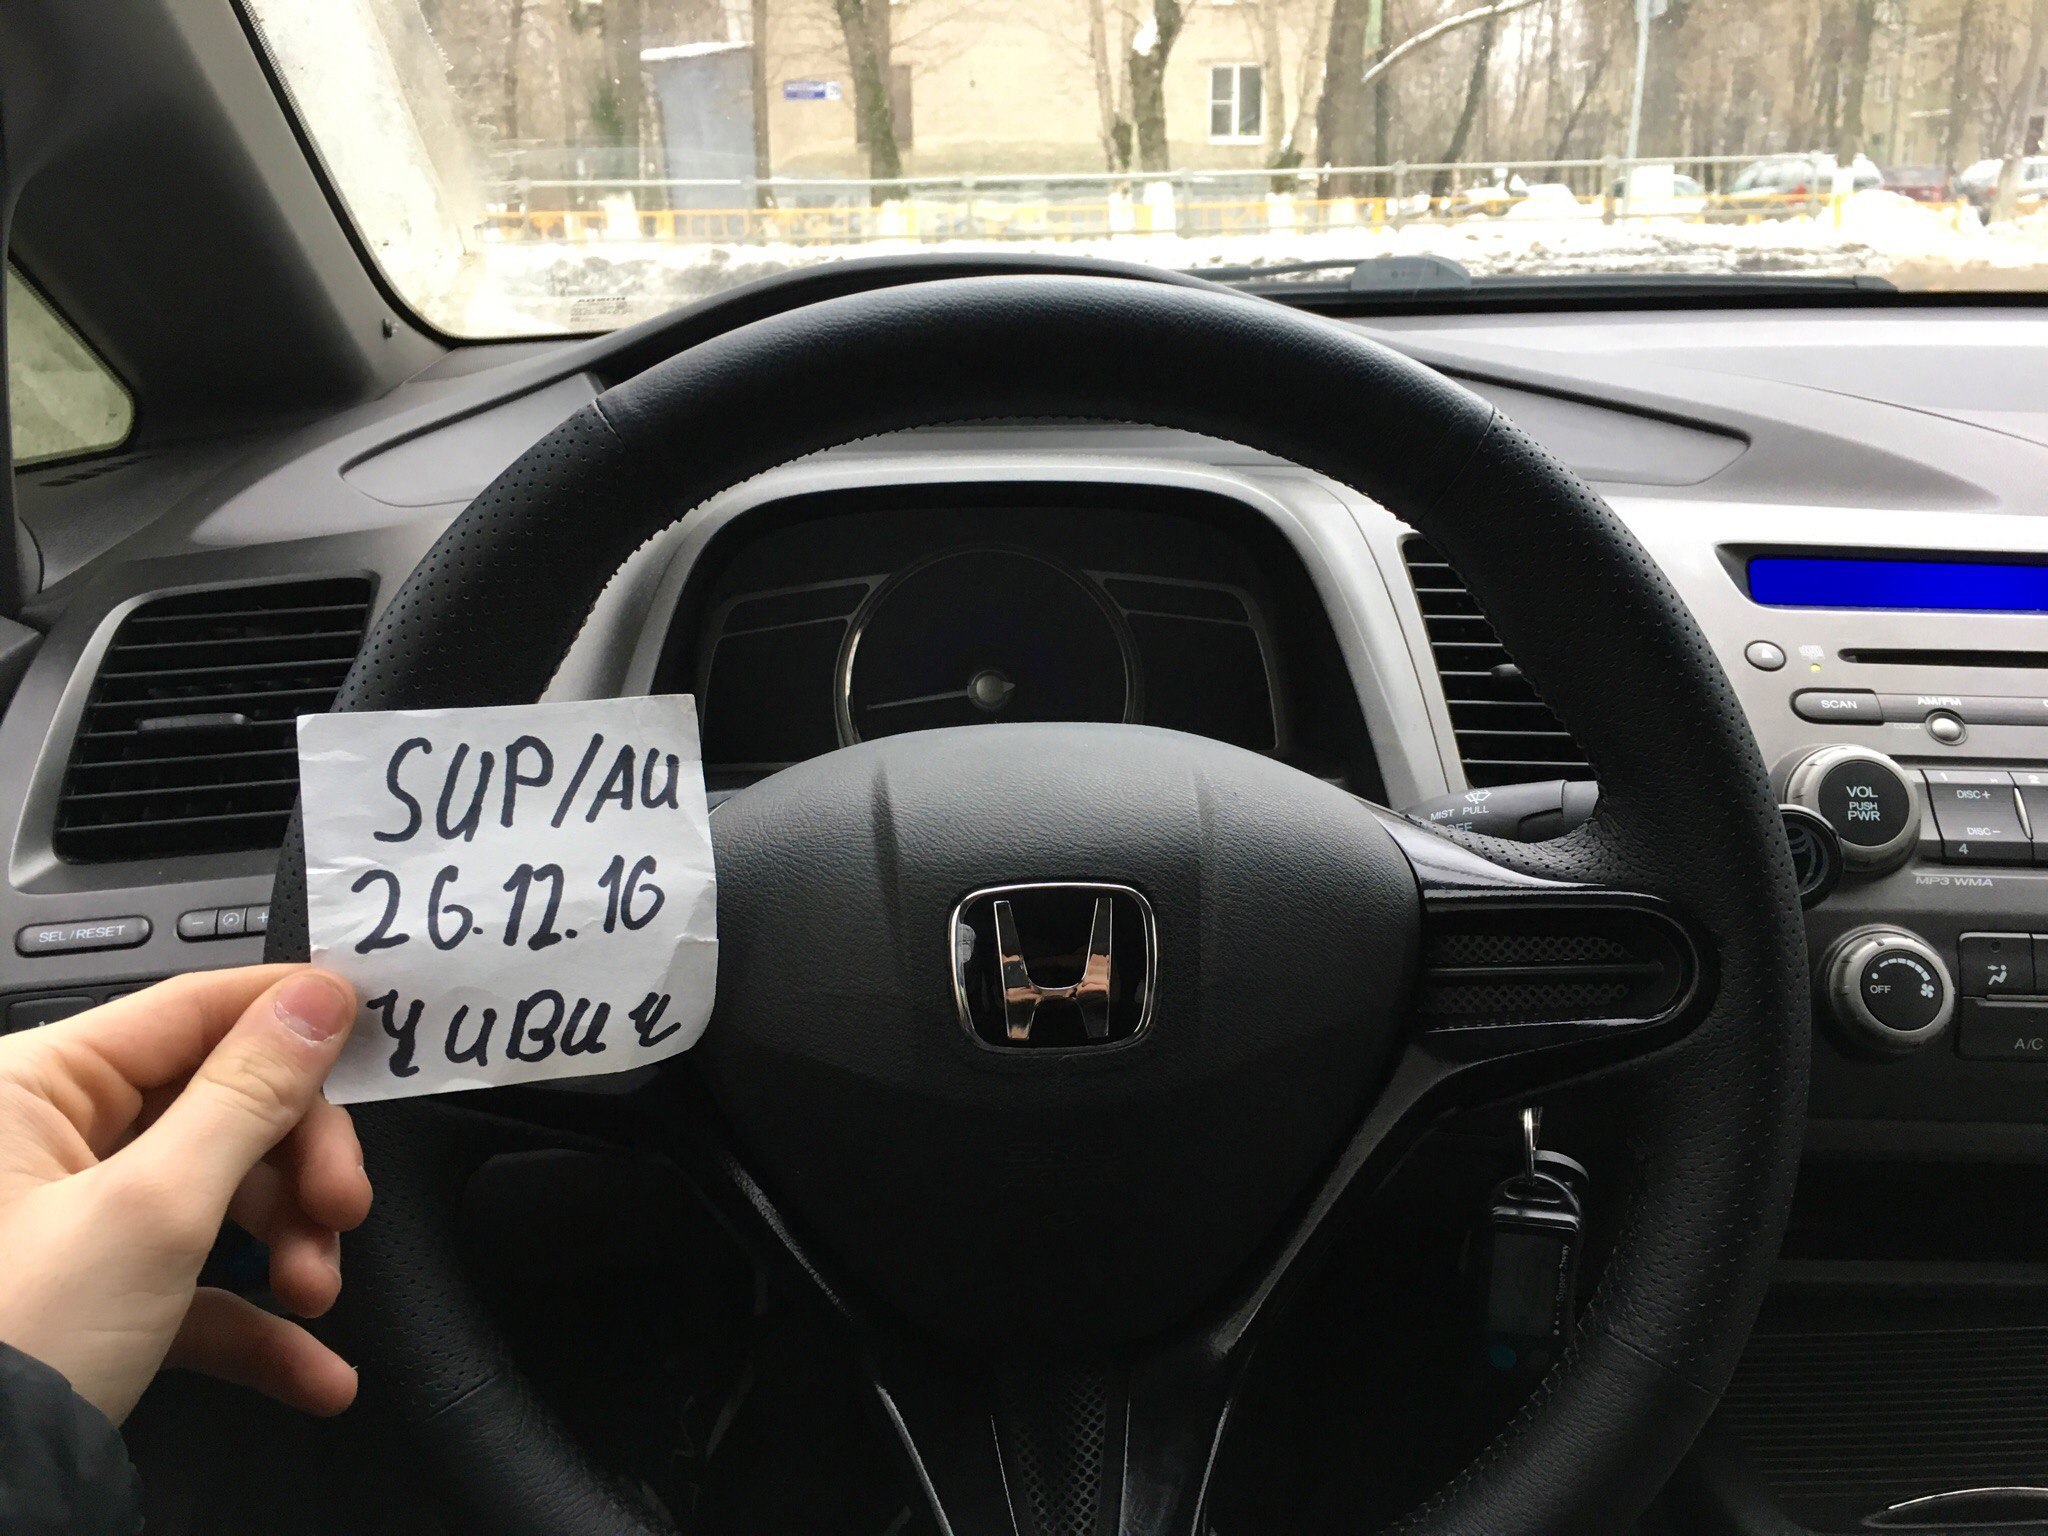 SUP/AU
26.12.16
ЧИВИЧ
SEL/RESET
MIST PULL
OFF
SCAN
AM/FM
VOL
PUSH
PWR
1
2
DISC+
DISC-
4
MP3 WMA
OFF
A/C